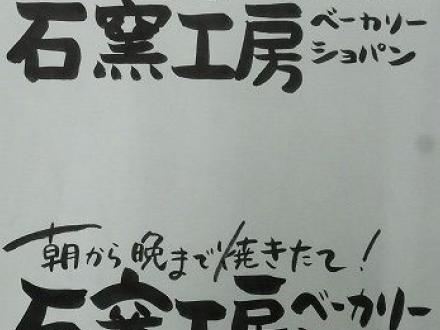 石窯工房
ベーカリー
ショパン
朝から晩まで焼きたて!
石窯工房
ベーカリー